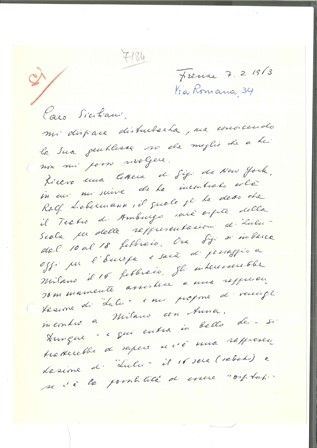 7184
Firenze 7. 2 1963
Via Romana, 34
Caro Siciliani,
mi dispiace disturbarla, ma conoscendo
la Sua gentilezza so che meglio che a lei
non mi posso rivolgere.
Ricevo una lettera di Gigi da New York,
in cui mi scrive che ha incontrato colà
Rolf Liebermann il quale gli ha detto che
il Teatro di Amburgo sarà ospite della
Scala per delle rappresentazioni di "Lulu"
dal 10 al 18 febbraio. Ora Gigi si imbarca
oggi per l'Europa e sarà di passaggio a
Milano il 16 febbraio. Gli interesserebbe
sommamente assistere a una rappresen
tazione di "Lulu" e mi propone di
incontro a Milano con Anna.
Dunque - e qui entra in ballo Lei - si
tratterebbe di sapere se c'è una rappresen
tazione di "Lulu" il 16 sera (sabato) e
se c'è la possibilità di essere "ospitati"